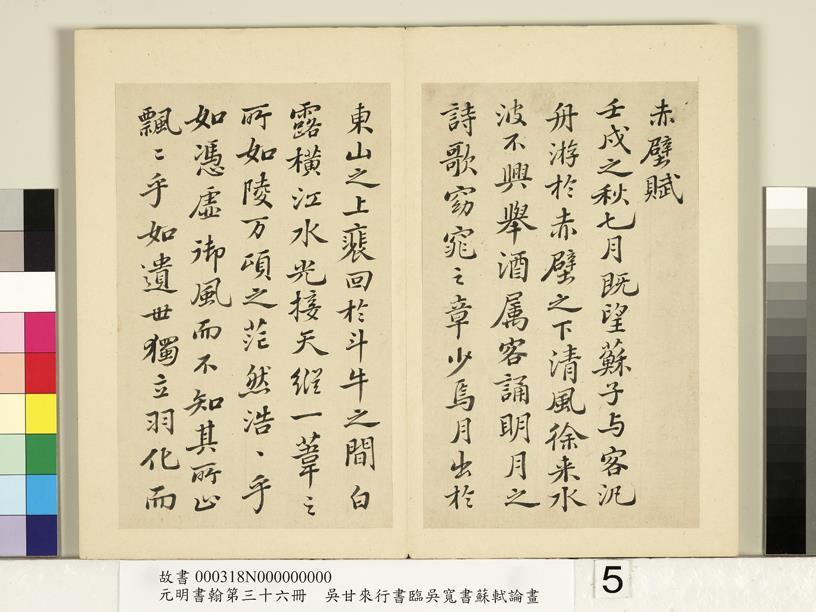 赤壁賦
壬戌之秋七月既望蘇子与客汎
舟游於赤壁之下清風徐来水
波不興舉酒属客誦明月之
詩歌窈窕之章少焉月出於
東山之上裵回於斗牛之間白
露橫江水光接天縱一葦之
所如陵万頃之茫然浩〻乎
如憑虛御風而不知其所止
飄〻乎如遺世獨立羽化而
故書 000318N000000000
元明書翰第三十六冊　吳甘來行書臨吳寬書蘇軾論畫
5